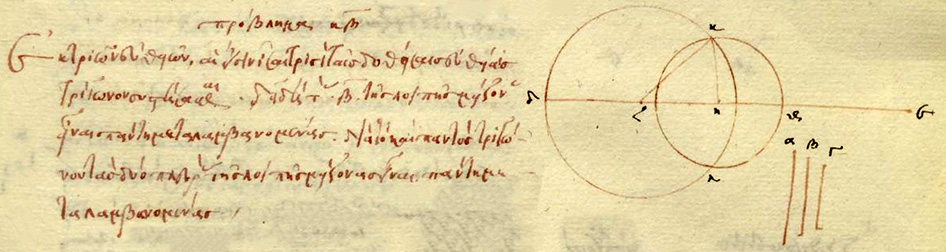 πρόβλημα κβ
Ἐκ τριῶν εὐθειῶν, αἵ εἰσιν ἴσαι τρισὶ ταῖς δοθείσαις εὐθείαις
τρίγωνον συστήσασθαι · δεῖ δὲ τὰς β τῆς λοιπῆς μείζονας
εἶναι πάντη μεταλαμβανομένας . διὰ τὸ καὶ παντὸς τριγώ-
νου τὰς δύο πλευρὰς τῆς λοιπῆς μείζονας εἶναι πάντη με
ταλαμβανομένας
κ
δ ζ η θ ε
λ
α β γ